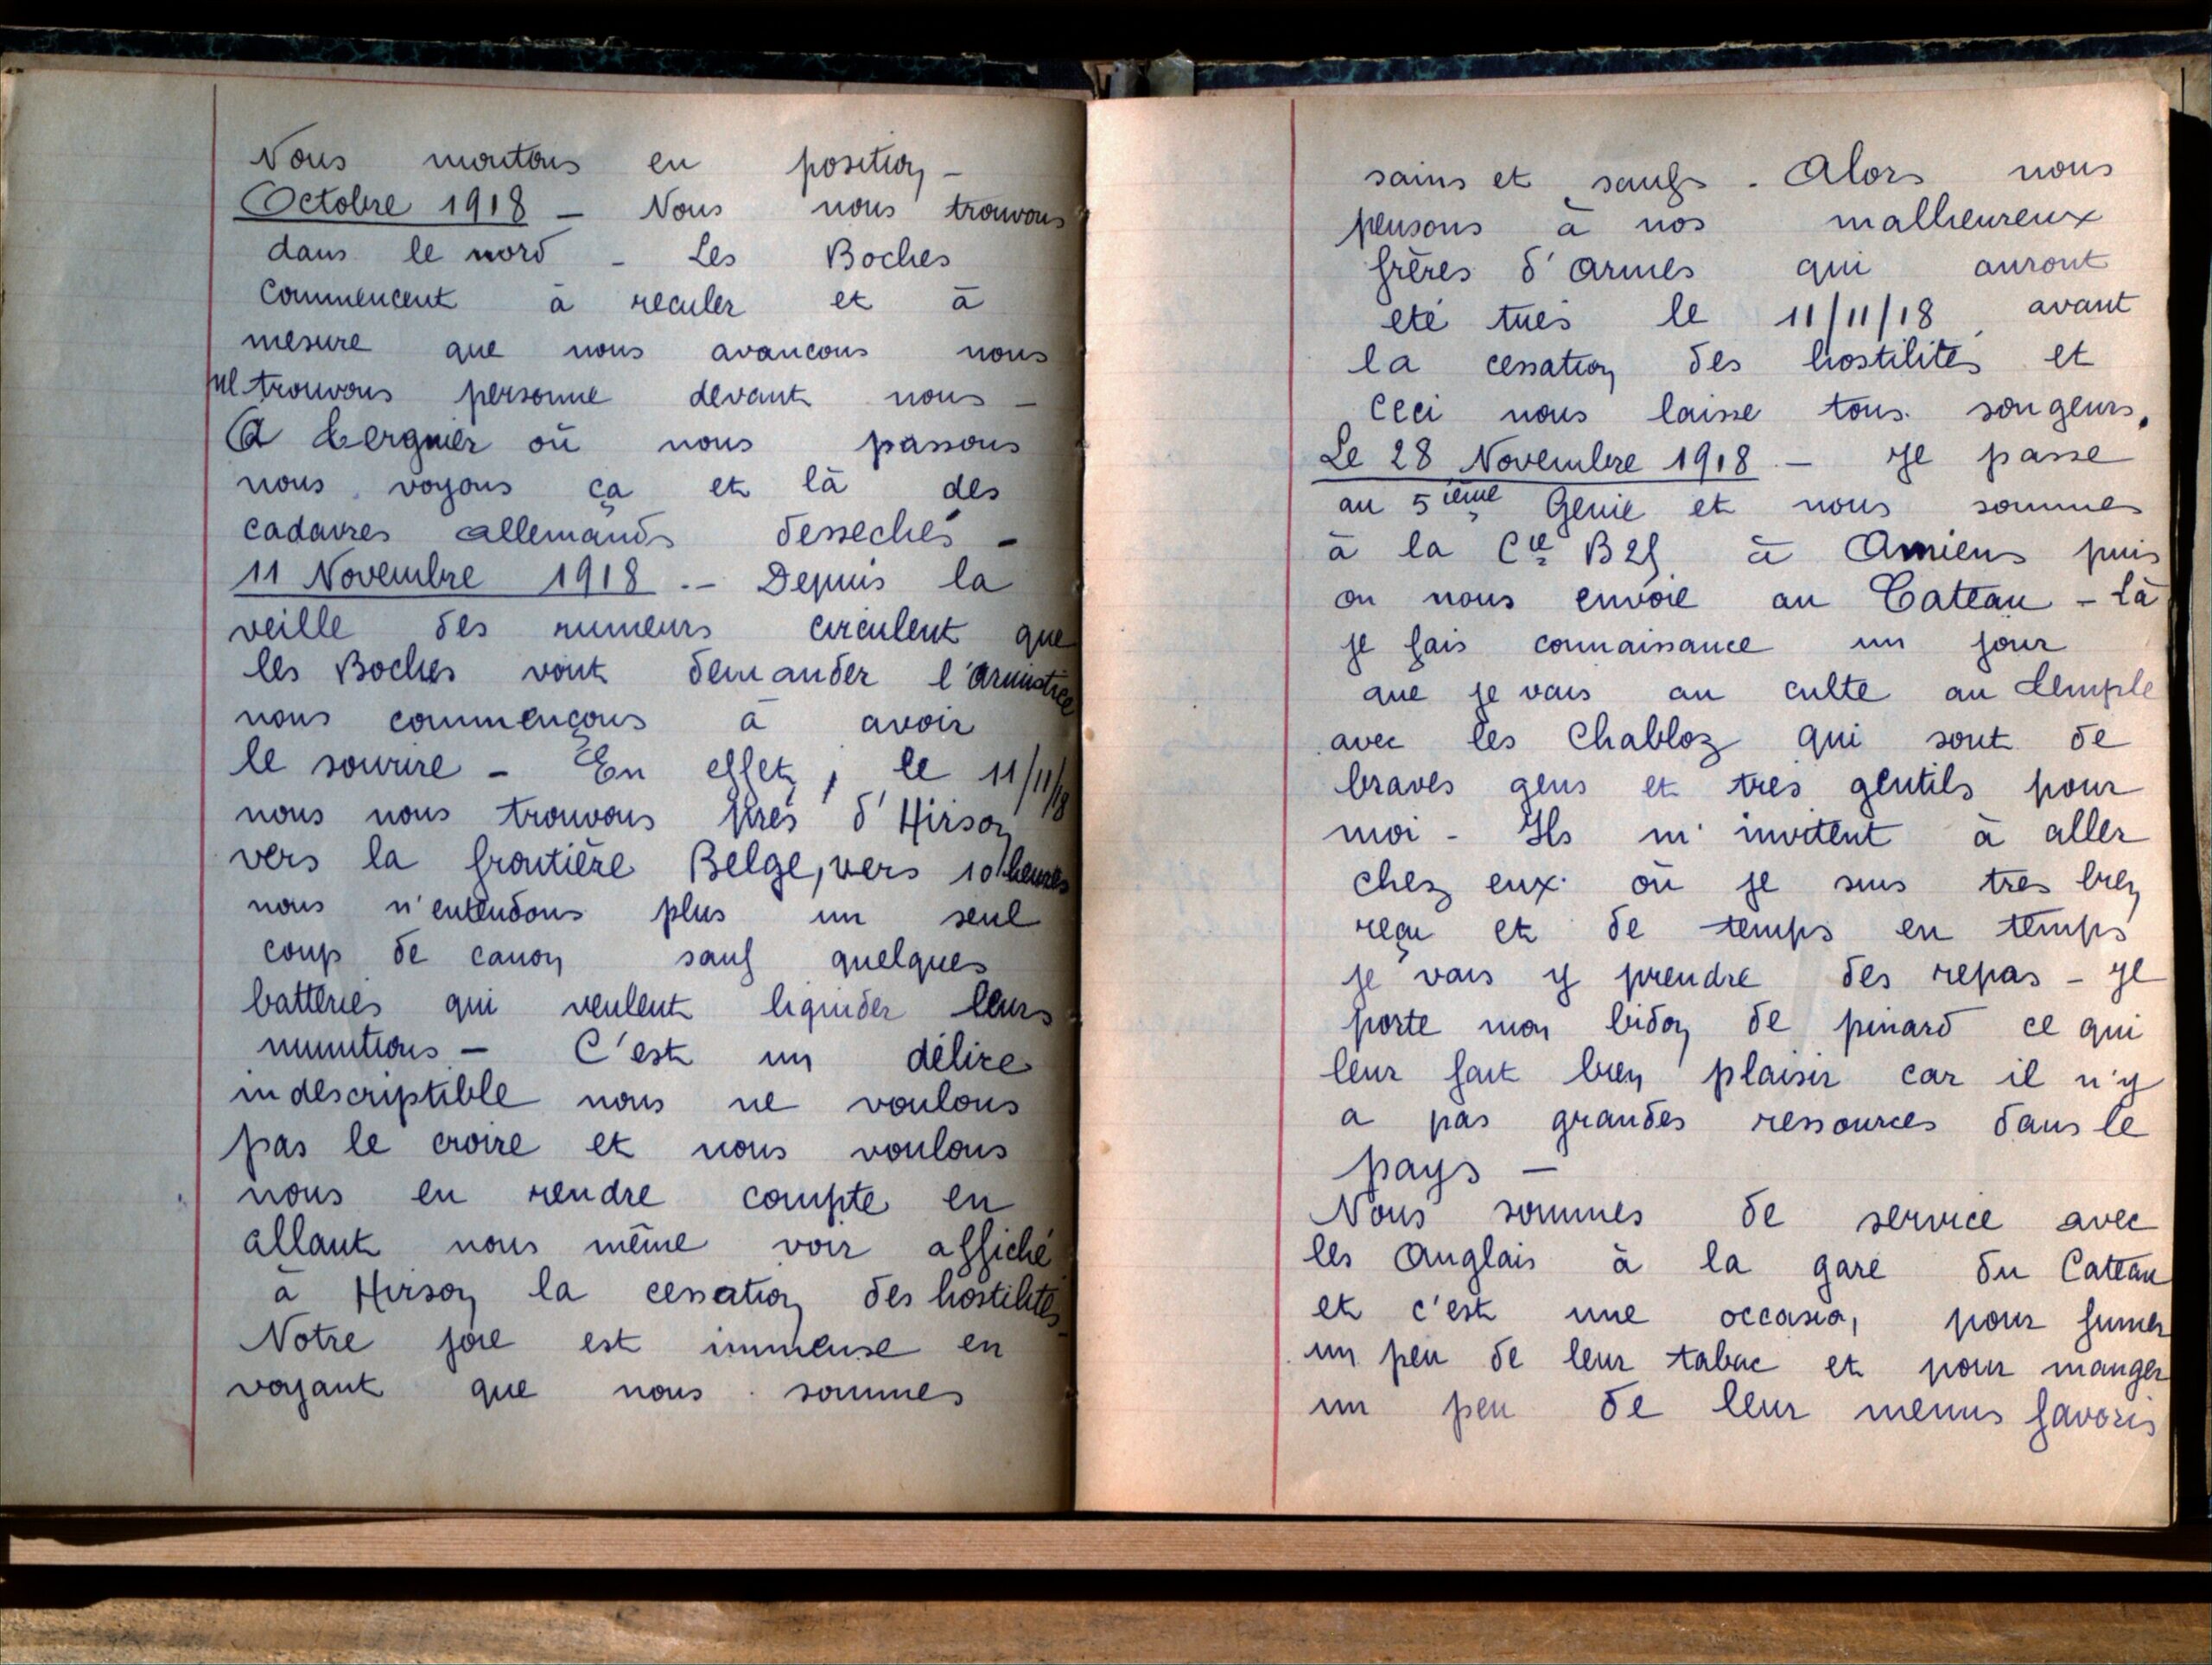 Nous montons en position -
Octobre 1918 - Nous nous trouvons
dans le nord - Les Boches
commencent à reculer et à
mesure que nous avancons nous
ne trouvons personne devant nous -
A Tergnier où nous passons
nous voyons ça et là des
cadavres allemands desseches -
11 Novembre 1918 .- Depuis la
veille des rumeurs circulent que
les Boches vont demander l'armistice
nous commençons à avoir
le sourire - En effet, le 11/11/18
nous nous trouvons près d'Hirson
vers la frontière Belge, vers 10 heures
nous n'entendons plus un seul
coup de canon sauf quelques
batteries qui veulent liquider leurs
munitions - C'est un délire
indescriptible nous ne voulons
pas le croire et nous voulons
nous en rendre compte en
allant nous même voir affiché
à Hirson la cessation des hostilités -
Notre joie est immense en
voyant que nous sommes
sains et saufs. Alors nous
pensons à nos malheureux
frères d'armes qui auront
eté tués le 11/11/18, avant
la cessation des hostilités et
ceci nous laisse tous songeurs.
Le 28 Novembre 1918 - Je passe
au 5ième Genie et nous sommes
à la Cie B25 à Amiens puis
on nous envoie au Cateau - Là
je fais connaissance un jour
que je vais au culte au temple
avec les Chabloz qui sont de
braves gens et très gentils pour
moi - Ils m'invitent à aller
chez eux où je suis tres bien
reçu et de temps en temps
je vais y prendre des repas - Je
porte mon bidon de pinard ce qui
leur fait bien plaisir car il n'y
a pas grandes ressources dans le
pays -
Nous sommes de service avec
les Anglais à la gare du Cateau
et c'est une occasion pour fumer
un peu de leur tabac et pour manger
un peu de leur menus favoris